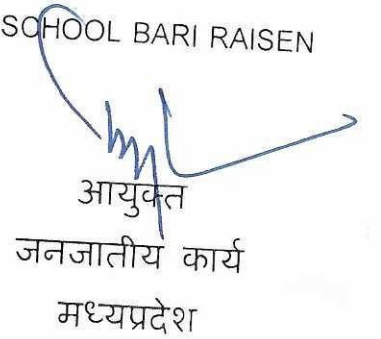 SCHOOL BARI RAISEN
आयुक्त
जनजातीय कार्य
मध्यप्रदेश